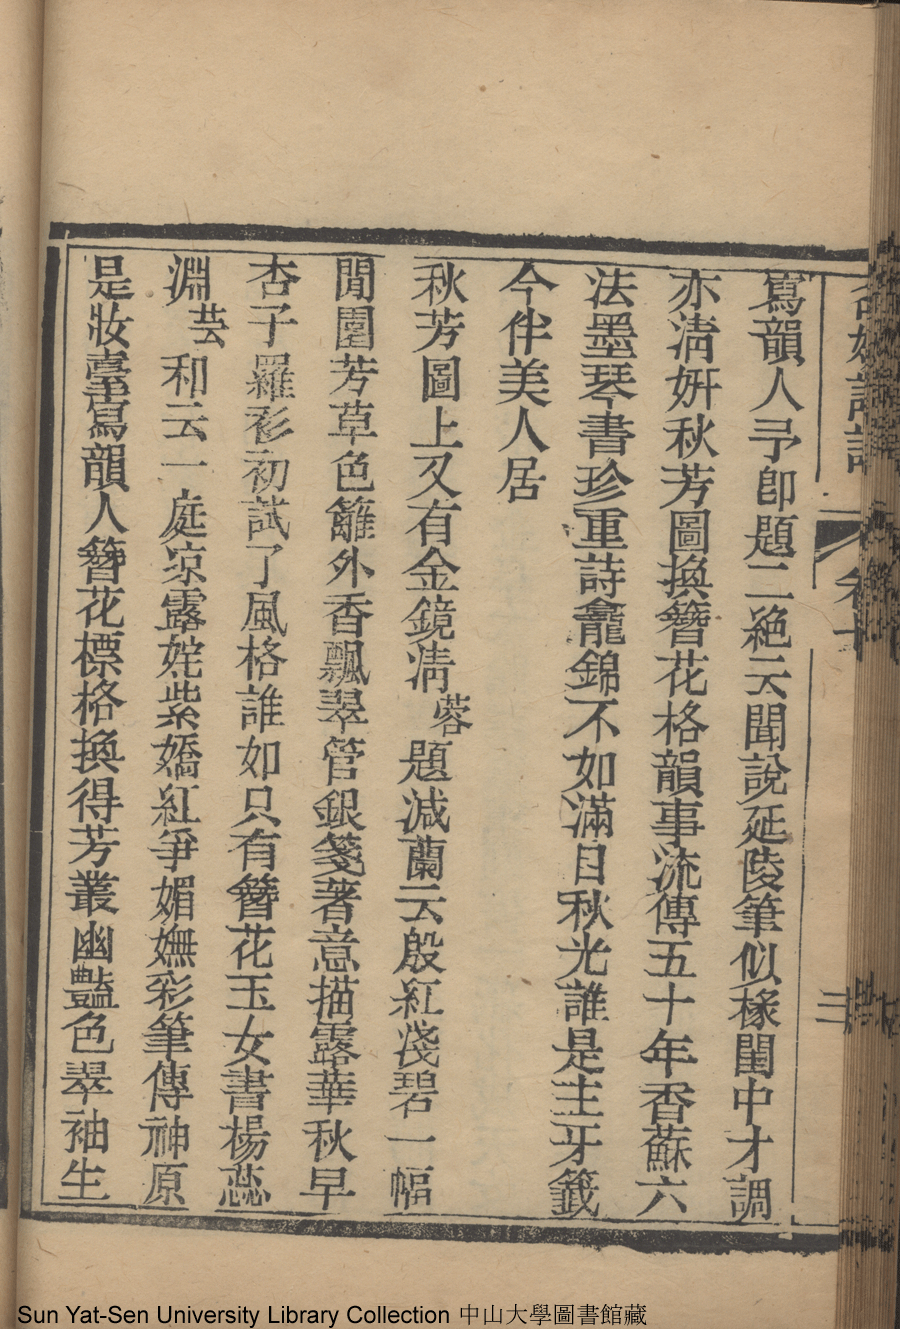 寫韻人予即題二絕云聞說延陵筆似椽閨中才調
亦淸妍秋芳圖換簪花格韻事流傳五十年香蘇六
法墨琴書珍重詩龕錦不如滿目秋光誰是主牙籤
今伴美人居
秋芳圖上又有金鏡淸蓉題減蘭云殷紅淺碧一幅
閒圍芳草色籬外香飄翠管銀箋著意描露華秋早
杏子羅衫初試了風格誰如只有簪花玉女書楊蕊
淵芸和云一庭凉露姹紫嬌紅爭媚嫵彩筆傳神原
是妝臺寫韻人簪花標格換得芳叢幽豔色翠袖生
三
Sun Yat-Sen University Library Collection 中山大學圖書館藏